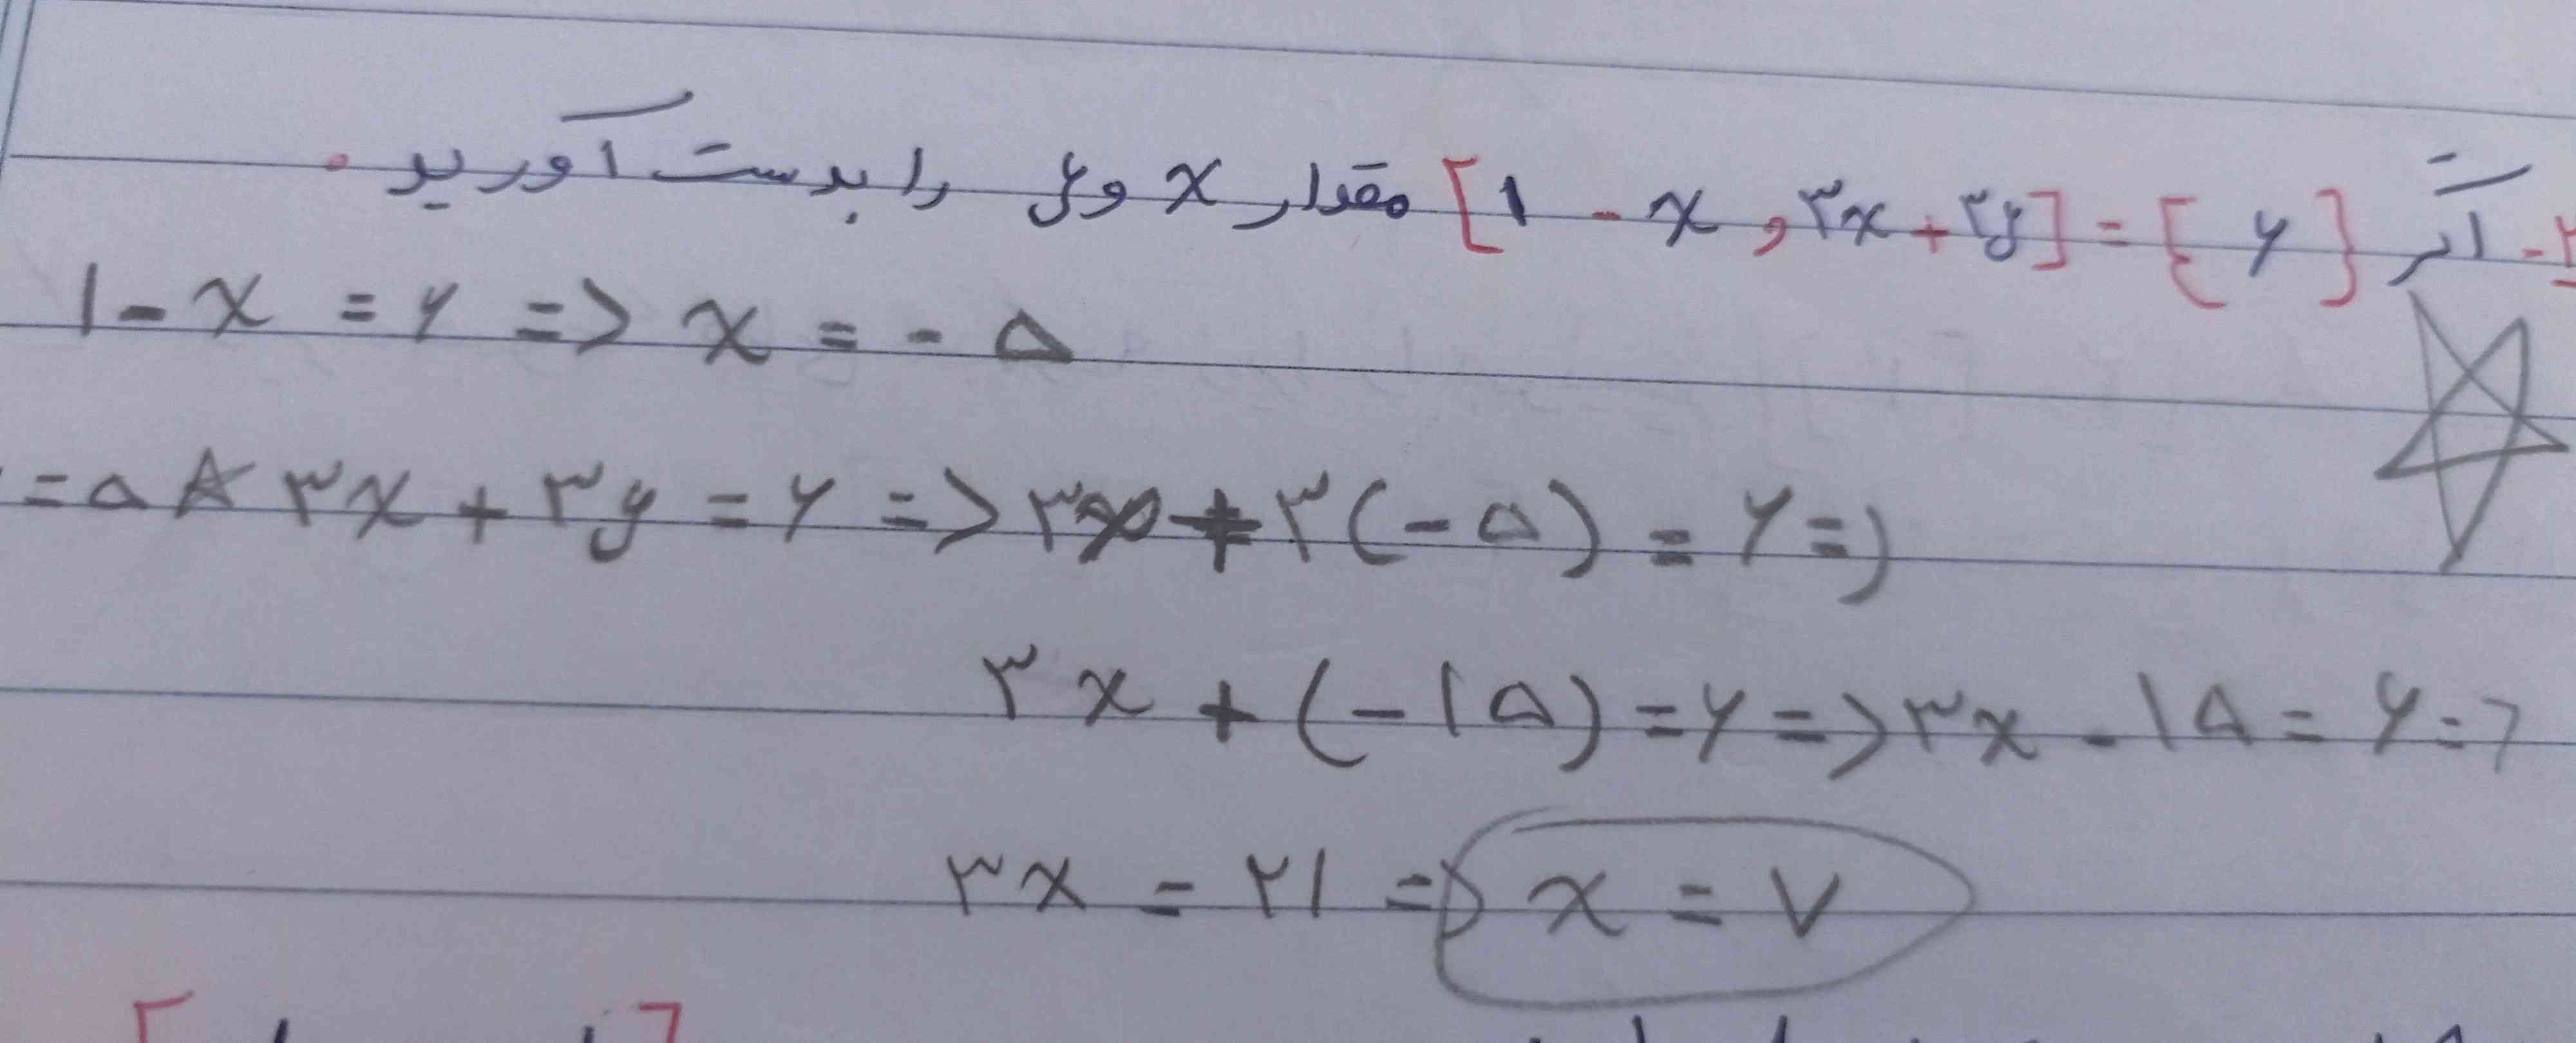 ۲- اگر [۱ - x , ۳x + ۳y] = {۶} مقدار x و y را بدست آورید.
۱ - x = ۶ => x = - ۵
= ۵ ☆ ۳x + ۳y = ۶ => ۳x + ۳(-۵) = ۶ =>
۳x + (-۱۵) = ۶ => ۳x - ۱۵ = ۶ =>
۳x = ۲۱ => x = ۷